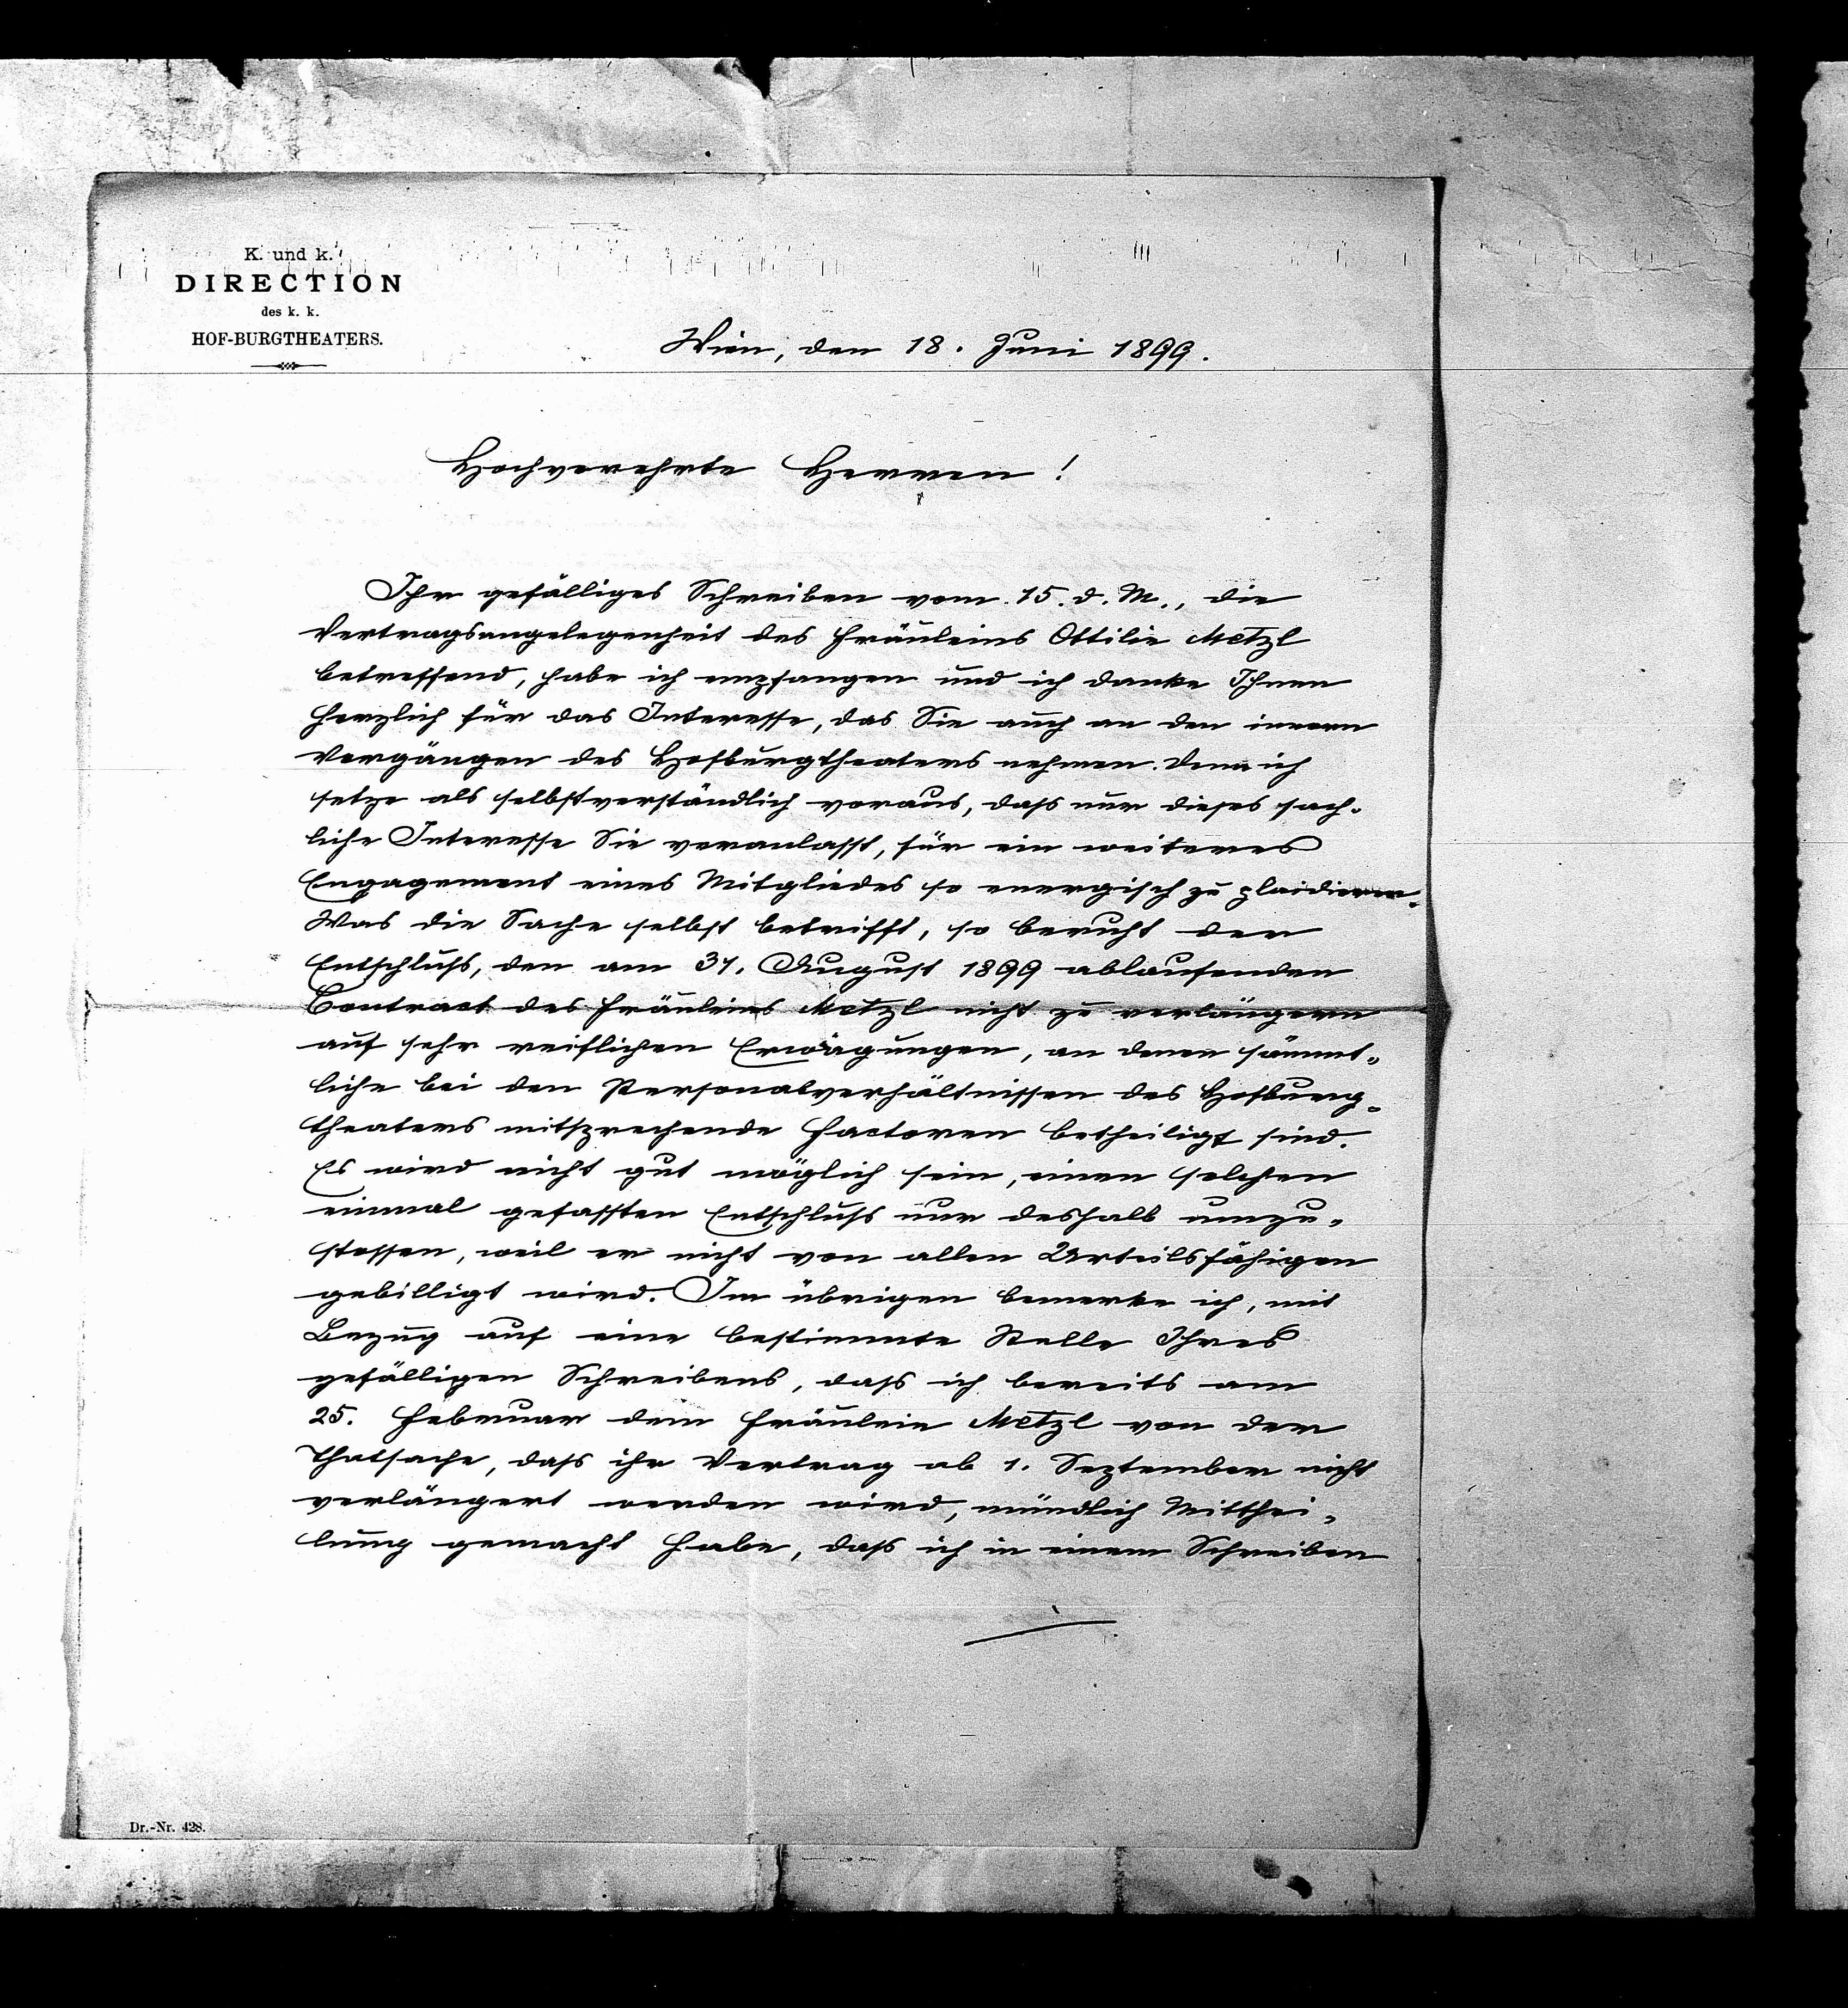 K. und k.
DIRECTION
des k. k.
HOF-BURGTHEATERS.
Wien, den 18. Juni 1899.
Hochverehrte Herren!
Ihr gefälliges Schreiben vom 15. d. M., die
Vertragsangelegenheit des Fräuleins Ottilie Metzl
betreffend, habe ich empfangen und ich danke Ihnen
herzlich für das Interesse, das Sie auch an den innern
Vorgängen des Hofburgtheaters nehmen. Denn ich
setze als selbstverständlich voraus, dass nur dieses sach-
liche Interesse Sie veranlasst, für ein weiteres
Engagement eines Mitgliedes so energisch zu plaidieren.
Was die Sache selbst betrifft, so beruht der
Entschluss, den am 31. August 1899 ablaufenden
Contract des Fräuleins Metzl nicht zu verlängern
auf sehr reiflichen Erwägungen, an denen sämmt-
liche bei den Personalverhältnissen des Hofburg-
theaters mitsprechende Factoren betheiligt sind.
Es wird nicht gut möglich sein, einen solchen
einmal gefassten Entschluss nur deshalb umzu-
stossen, weil er nicht von allen Urteilsfähigen
gebilligt wird. Im übrigen bemerke ich, mit
Bezug auf eine bestimmte Stelle Ihres
gefälligen Schreibens, dass ich bereits am
25. Februar dem Fräulein Metzl von der
Thatsache, dass ihr Vertrag ab 1. September nicht
verlängert werden wird, mündlich Mitthei-
lung gemacht habe, dass ich in einem Schreiben
Dr.-Nr. 428.